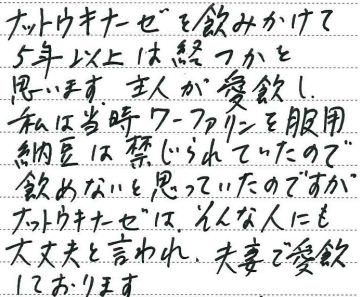 ナットウキナーゼを飲みかけて
5年以上は経つかと
思います。主人が愛飲し、
私は当時ワーファリンを服用
納豆は禁じられていたので
飲めないと思っていたのですが
ナットウキナーゼは、そんな人にも
大丈夫と言われ、夫妻で愛飲
しております